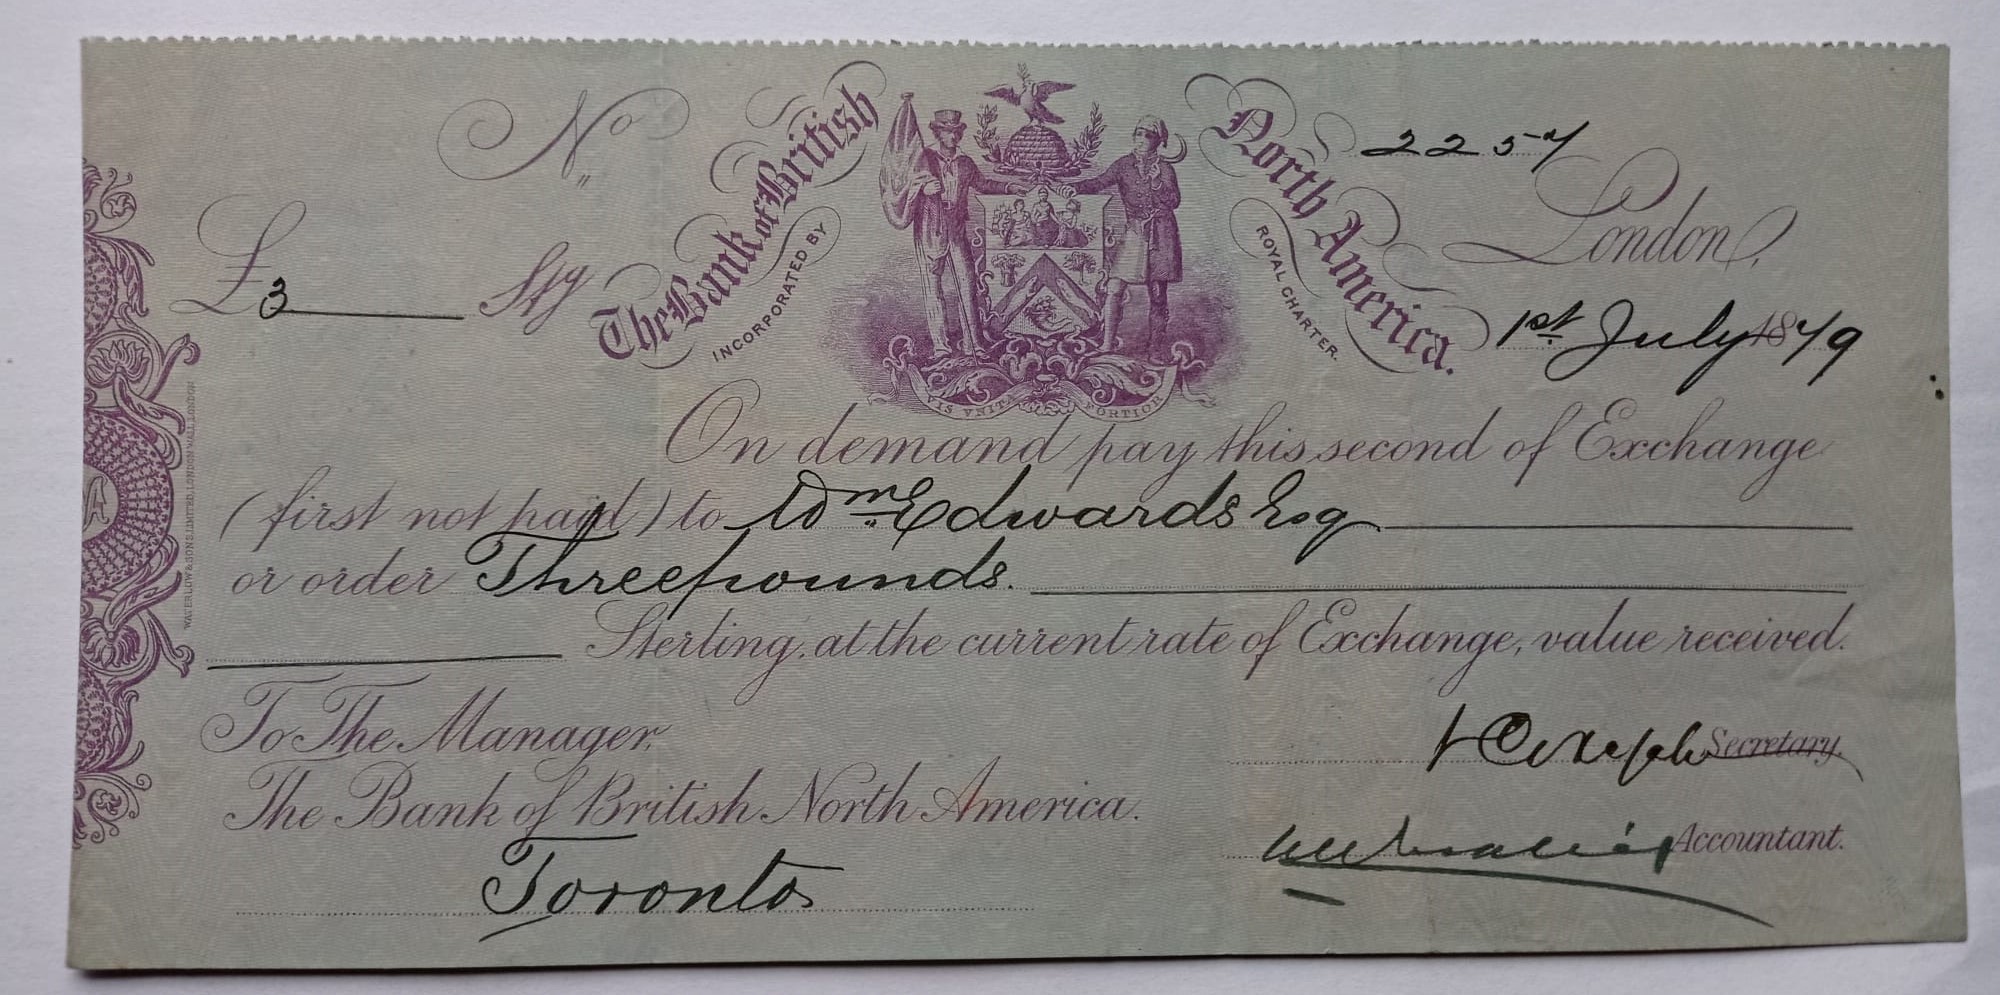 No
The Bank of British North America.
INCORPORATED BY ROYAL CHARTER.
London,
£3 Stg
1st. July 1879
VIS UNITA FORTIOR
On demand pay this second of Exchange
(first not paid) to Wm. Edwards Esq
or order Three pounds.
Sterling, at the current rate of Exchange, value received.
To The Manager,
Secretary.
The Bank of British North America.
Accountant.
Toronto
WATERLOW & SONS LIMITED, LONDON WALL, LONDON
A